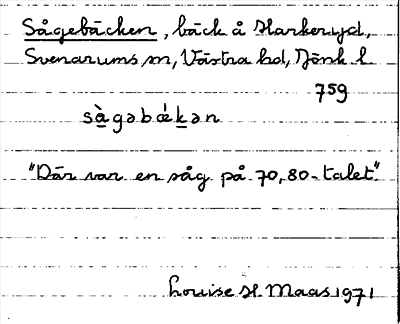 Sågebäcken, bäck å Harkeryd,
Svenarums sn, Västra hd, Jönk l
759
sàgəbǽkən
"Där var en såg på 70, 80-talet"
Louise H. Maas 1971